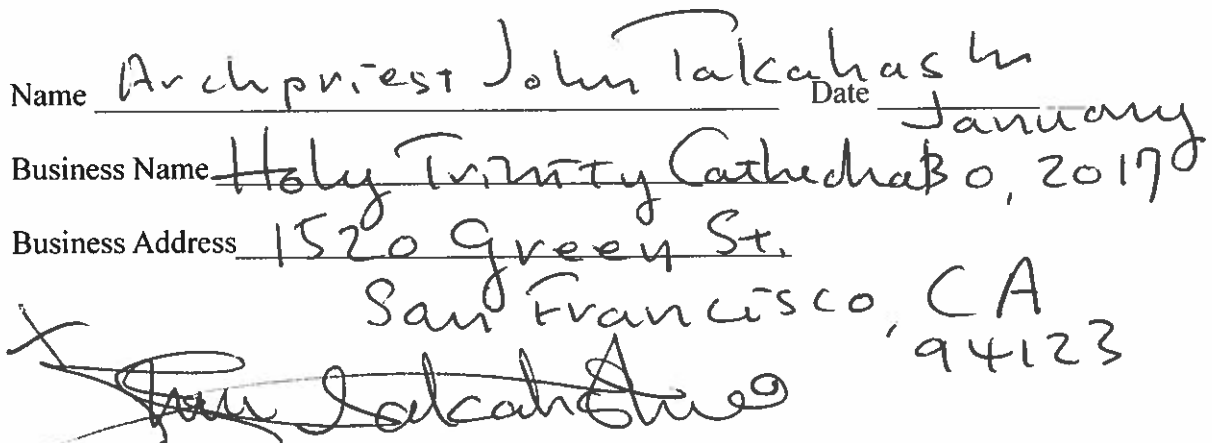 Name Archpriest John Takahashi Date January
Business Name Holy Trinity Cathedral 30, 2017
Business Address 1520 Green St.
San Francisco, CA
94123
John Takahashi